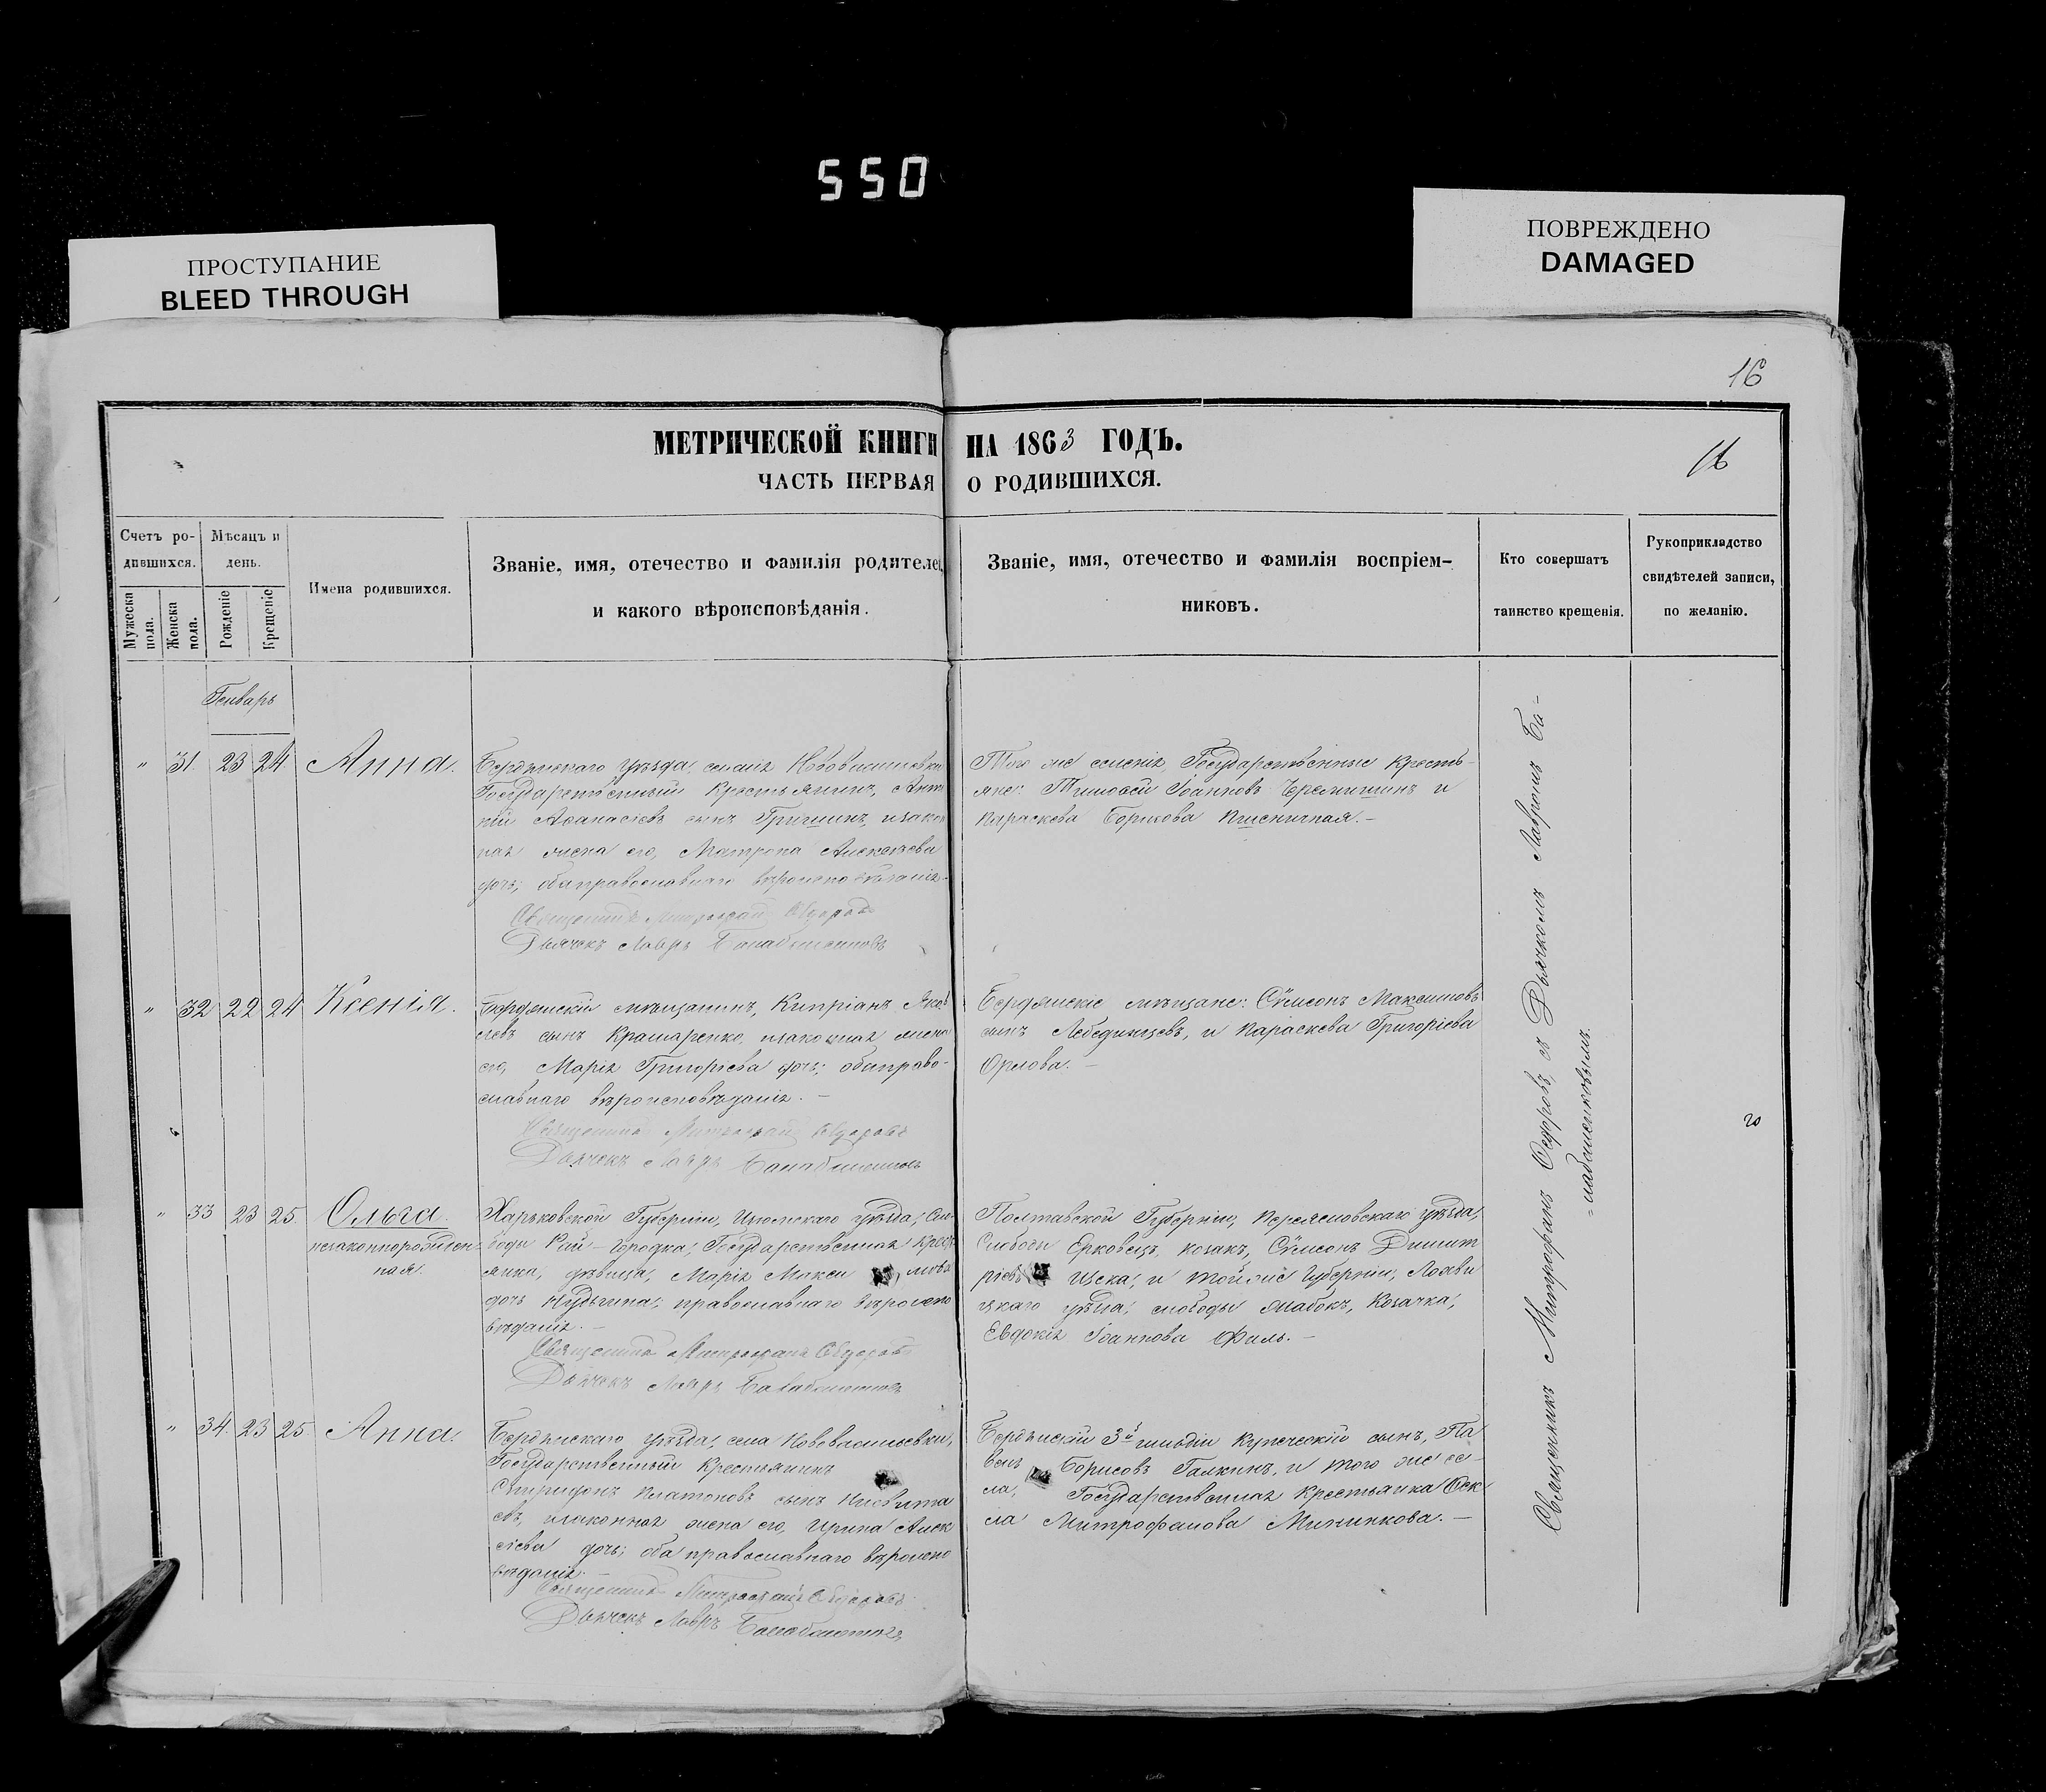 550
ПРОСТУПАНИЕ
BLEED THROUGH
ПОВРЕЖДЕНО
DAMAGED
16
МЕТРИЧЕСКОЙ КНИГИ НА 1863 ГОДЪ.
16
ЧАСТЬ ПЕРВАЯ О РОДИВШИХСЯ.
Счетъ ро-
дившихся.
Мужеска пола.
Женска пола.
Мѣсяцъ и
день.
Рожденіе
Крещеніе
Имена родившихся.
Званіе, имя, отечество и фамилія родителей,
и какого вѣроисповѣданія.
Званіе, имя, отечество и фамилія воспріем-
никовъ.
Кто совершатъ
таинство крещенія.
Рукоприкладство
свидѣтелей записи,
по желанію.
Генварь
" 31. 23 24. Анна.
Бердянскаго уѣзда, селенія Нововасильевки
Государственный крестьянинъ, Анто
ній Аѳанасіевъ сынъ Гришинъ, изакон
ная жена его, Матрона Алексѣева
дочь; обаправославнаго вѣроисповѣданія.
Священникъ Митрофанъ
Дьячекъ Лавръ
Того же селенія, Государственные кресть-
яне: Тимоѳей Іоанновъ Черемишинъ и
Параскева Борисова Пшеничная. —
" 32 22 24 Ксенія.
Бердянскій мѣщанинъ, Кипріанъ Яков
левъ сынъ Крамаренко, изаконная жена
его, Марія Григоріева дочь; обаправо-
славнаго вѣроисповѣданія. —
Священникъ Митрофанъ
Дьячекъ Лавръ
Бердянскіе мѣщане: Сѵмеонъ Максимовъ
сынъ Лебединцевъ, и Параскева Григоріева
Орлова. —
" 33 23 25. Ольга.
незаконнорожден-
ная.
Харьковской Губерніи, Изюмскаго уѣзда, Сло-
боды Рай-Городка, Государственная крест
янка, дѣвица, Марія Макси мова
дочь Кудыгина; православнаго вѣроиспо
вѣданія. —
Священникъ Митрофанъ
Дьячекъ Лавръ
Полтавской Губерніи, Переясловскаго уѣзда,
Слободы Ерковецъ, козакъ, Сѵмеонъ Димит
ріевъ и тойже Губерніи, Лохви
цкаго уѣзда, слободы Козачка,
Евдокія Іоаннова Филь. —
" 34. 23 25. Анна.
Бердянскаго уѣзда, села Нововасильевки,
Государственный Крестьянинъ
Спиридонъ Платоновъ сынъ
евъ, изаконная жена его, Ирина Алек
сѣева дочь; оба православнаго вѣроиспо
вѣданія.
Священникъ Митрофанъ
Дьячекъ Лавръ
Бердянскій 3й гильдіи Купеческій сынъ, Па
велъ Борисовъ Галкинъ, и того же се-
ла, Государственная Крестьянка Ѳек
ла Митрофанова Мининкова. —
Священникъ Митрофанъ съ Дьячкомъ Лавромъ Ба-